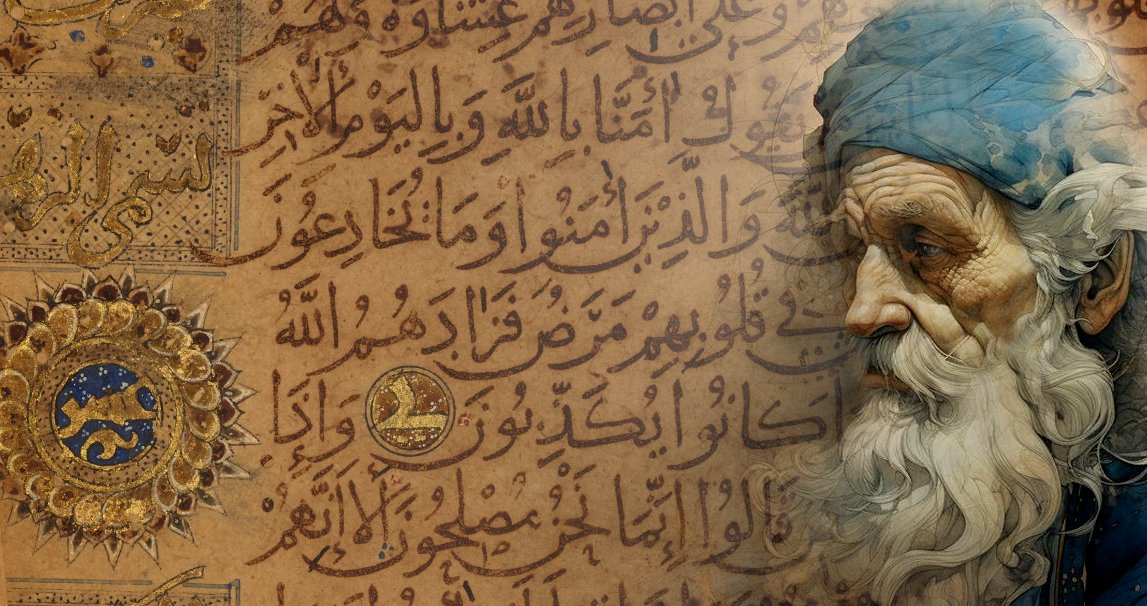 وعلى أبصارهم غشاوة ولهم
يقول آمنا بالله وباليوم الآخر
الله والذين آمنوا وما يخادعون
في قلوبهم مرض فزادهم الله
كانوا يكذبون وإذا
قالوا إنما نحن مصلحون ألا إنهم